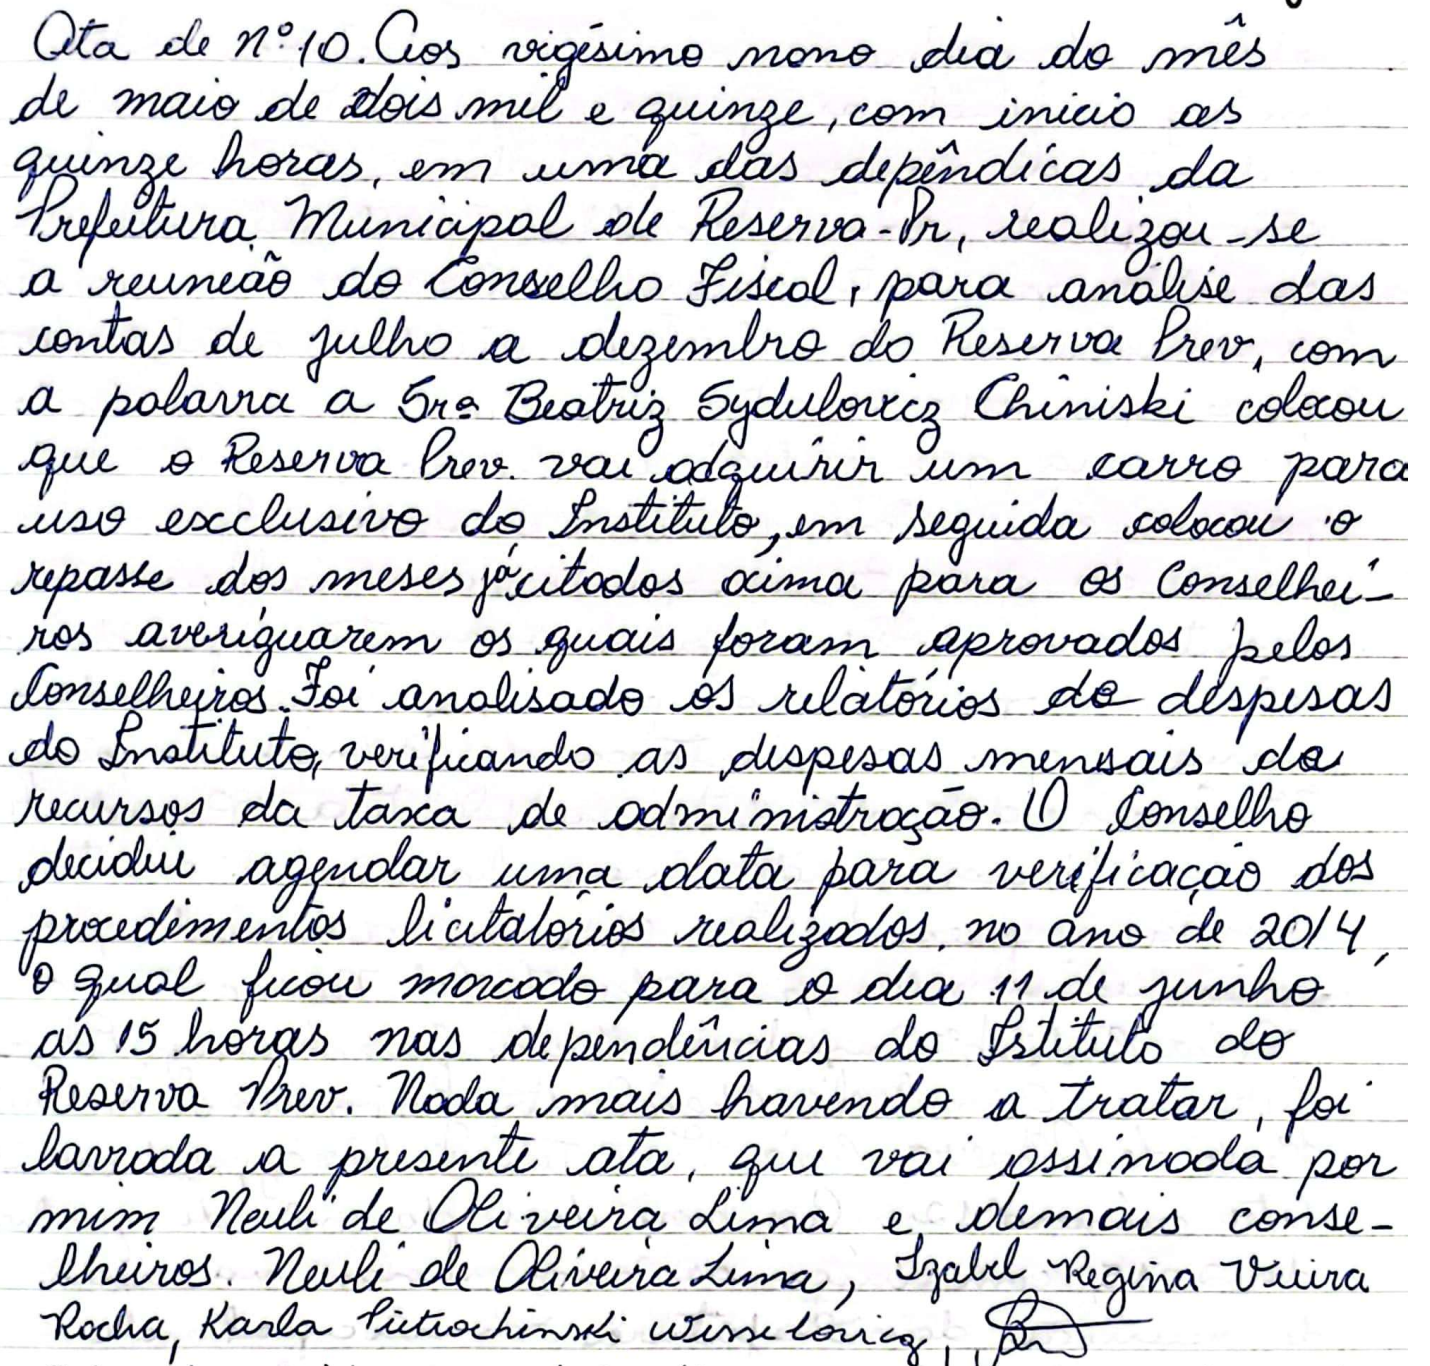 Ata de nº 10. Aos vigésimo nono dia do mês
de maio de dois mil e quinze, com inicio as
quinze horas, em uma das depêndicas da
Prefeitura Municipal de Reserva-Pr, realizou-se
a reuneão do Conselho Fiscal, para análise das
contas de julho a dezembro do Reserva Prev, com
a palavra a Srª Beatriz Sydulovicz Chiniski colocou
que o Reserva Prev. vai adquirir um carro para
uso exclusivo do Instituto, em seguida colocou o
repasse dos meses já citados acima para os Conselhei-
ros averiguarem os quais foram aprovados pelos
Conselheiros. Foi analisado os relatórios de despesas
do Instituto, verificando as despesas mensais da
recursos da taxa de administração. O Conselho
decidiu agendar uma data para verificação dos
procedimentos licitatórios realizados, no ano de 2014,
o qual ficou marcado para o dia 11 de junho
as 15 horas nas dependências do Istituto do
Reserva Prev. Nada mais havendo a tratar, foi
lavrada a presente ata, que vai assinada por
mim Neuli de Oliveira Lima e demais conse-
lheiros. Neuli de Oliveira Lima, Izabel Regina Vieira
Rocha, Karla Pietrochinski